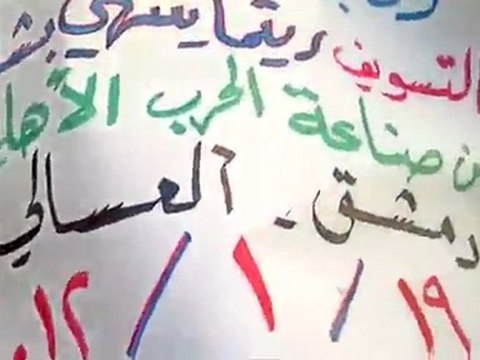 ريثما ينتهي
التسويف
من صناعة الحرب الأهلي
دمشق - العسالي
١٩ / ١ / ١٢